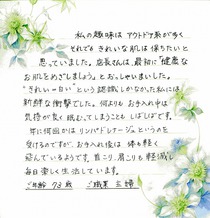 私の趣味は アウトドア系が多く
それでも きれいな肌は 保ちたいと
思っていました。店長さんは、最初に「健康な
お肌をめざしましょう」とおっしゃいました。
"きれい=白い"という認識しかなかった私には
新鮮な衝撃でした。何よりも お手入れ中は
気持が良く眠ってしまうことも しばしばです。
年に何回かは リンパドレナージュというのを
受けるのですが、お手入れ後は 体も軽く
飛んでいるようです。首こり、肩こりも 軽減し
毎日楽しく生活しています。
ご年齢 73歳 ご職業 主婦